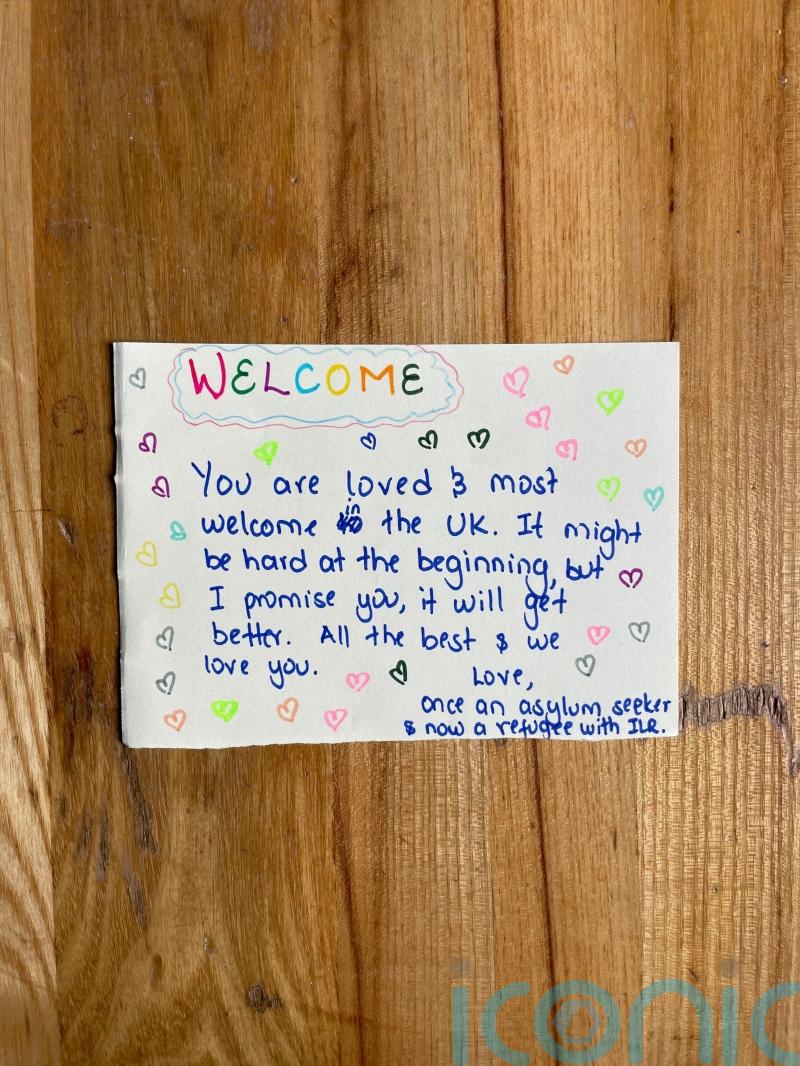 WELCOME
You are loved & most
welcome in the UK. It might
be hard at the beginning, but
I promise you, it will get
better. All the best & we
love you.
Love,
once an asylum seeker
& now a refugee with ILR.
iconic